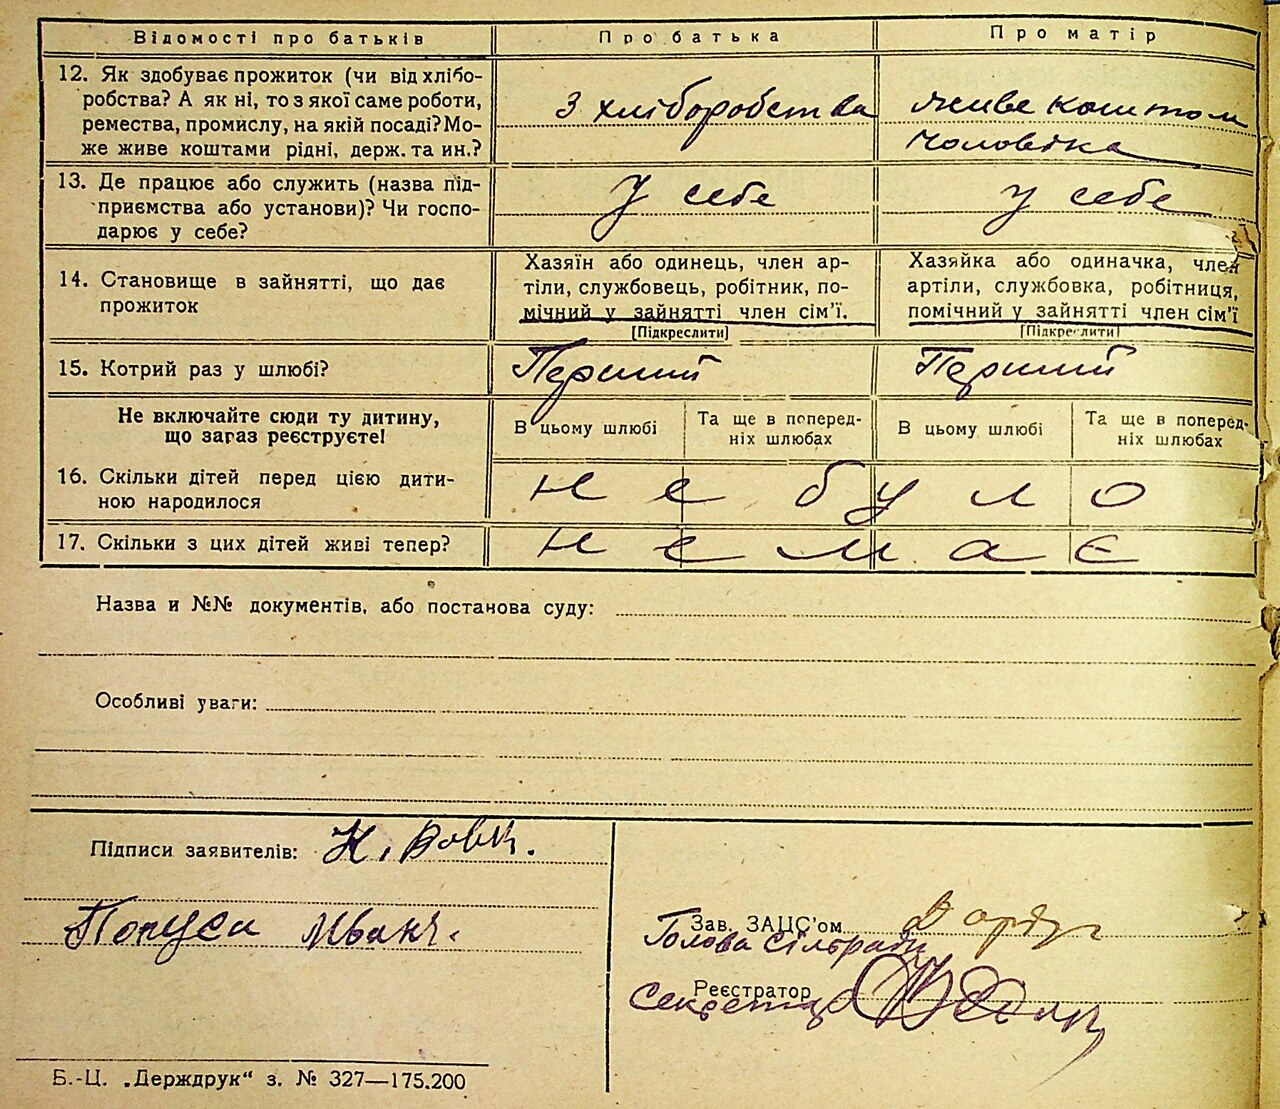 Відомості про батьків
Про батька
Про матір
12. Як здобуває прожиток (чи від хлібо-
робства? А як ні, то з якої саме роботи,
ремества, промислу, на якій посаді? Мо-
же живе коштами рідні, держ. та ин.?
З хліборобства
живе коштом
чоловіка
13. Де працює або служить (назва під-
приємства або установи)? Чи госпо-
дарює у себе?
У себе
У себе
14. Становище в зайнятті, що дає
прожиток
Хазяїн або одинець, член ар-
тіли, службовець, робітник, по-
мічний у зайнятті член сім'ї.
[Підкреслити]
Хазяйка або одиначка, член
артіли, службовка, робітниця,
помічний у зайнятті член сім'ї
[Підкреслити]
15. Котрий раз у шлюбі?
Перший
Перший
Не включайте сюди ту дитину,
що загаз реєструєте!
В цьому шлюбі
Та ще в поперед-
ніх шлюбах
В цьому шлюбі
Та ще в поперед-
ніх шлюбах
16. Скільки дітей перед цією дити-
ною народилося
не було
17. Скільки з цих дітей живі тепер?
немає
Назва и №№ документів, або постанова суду:
Особливі уваги:
Підписи заявителів: К. Вовк.
Іван
Зав. ЗАЦС'ом
Голова Сільради
Реєстратор
Секретар
Б.-Ц. „Держдрук“ з. № 327—175.200